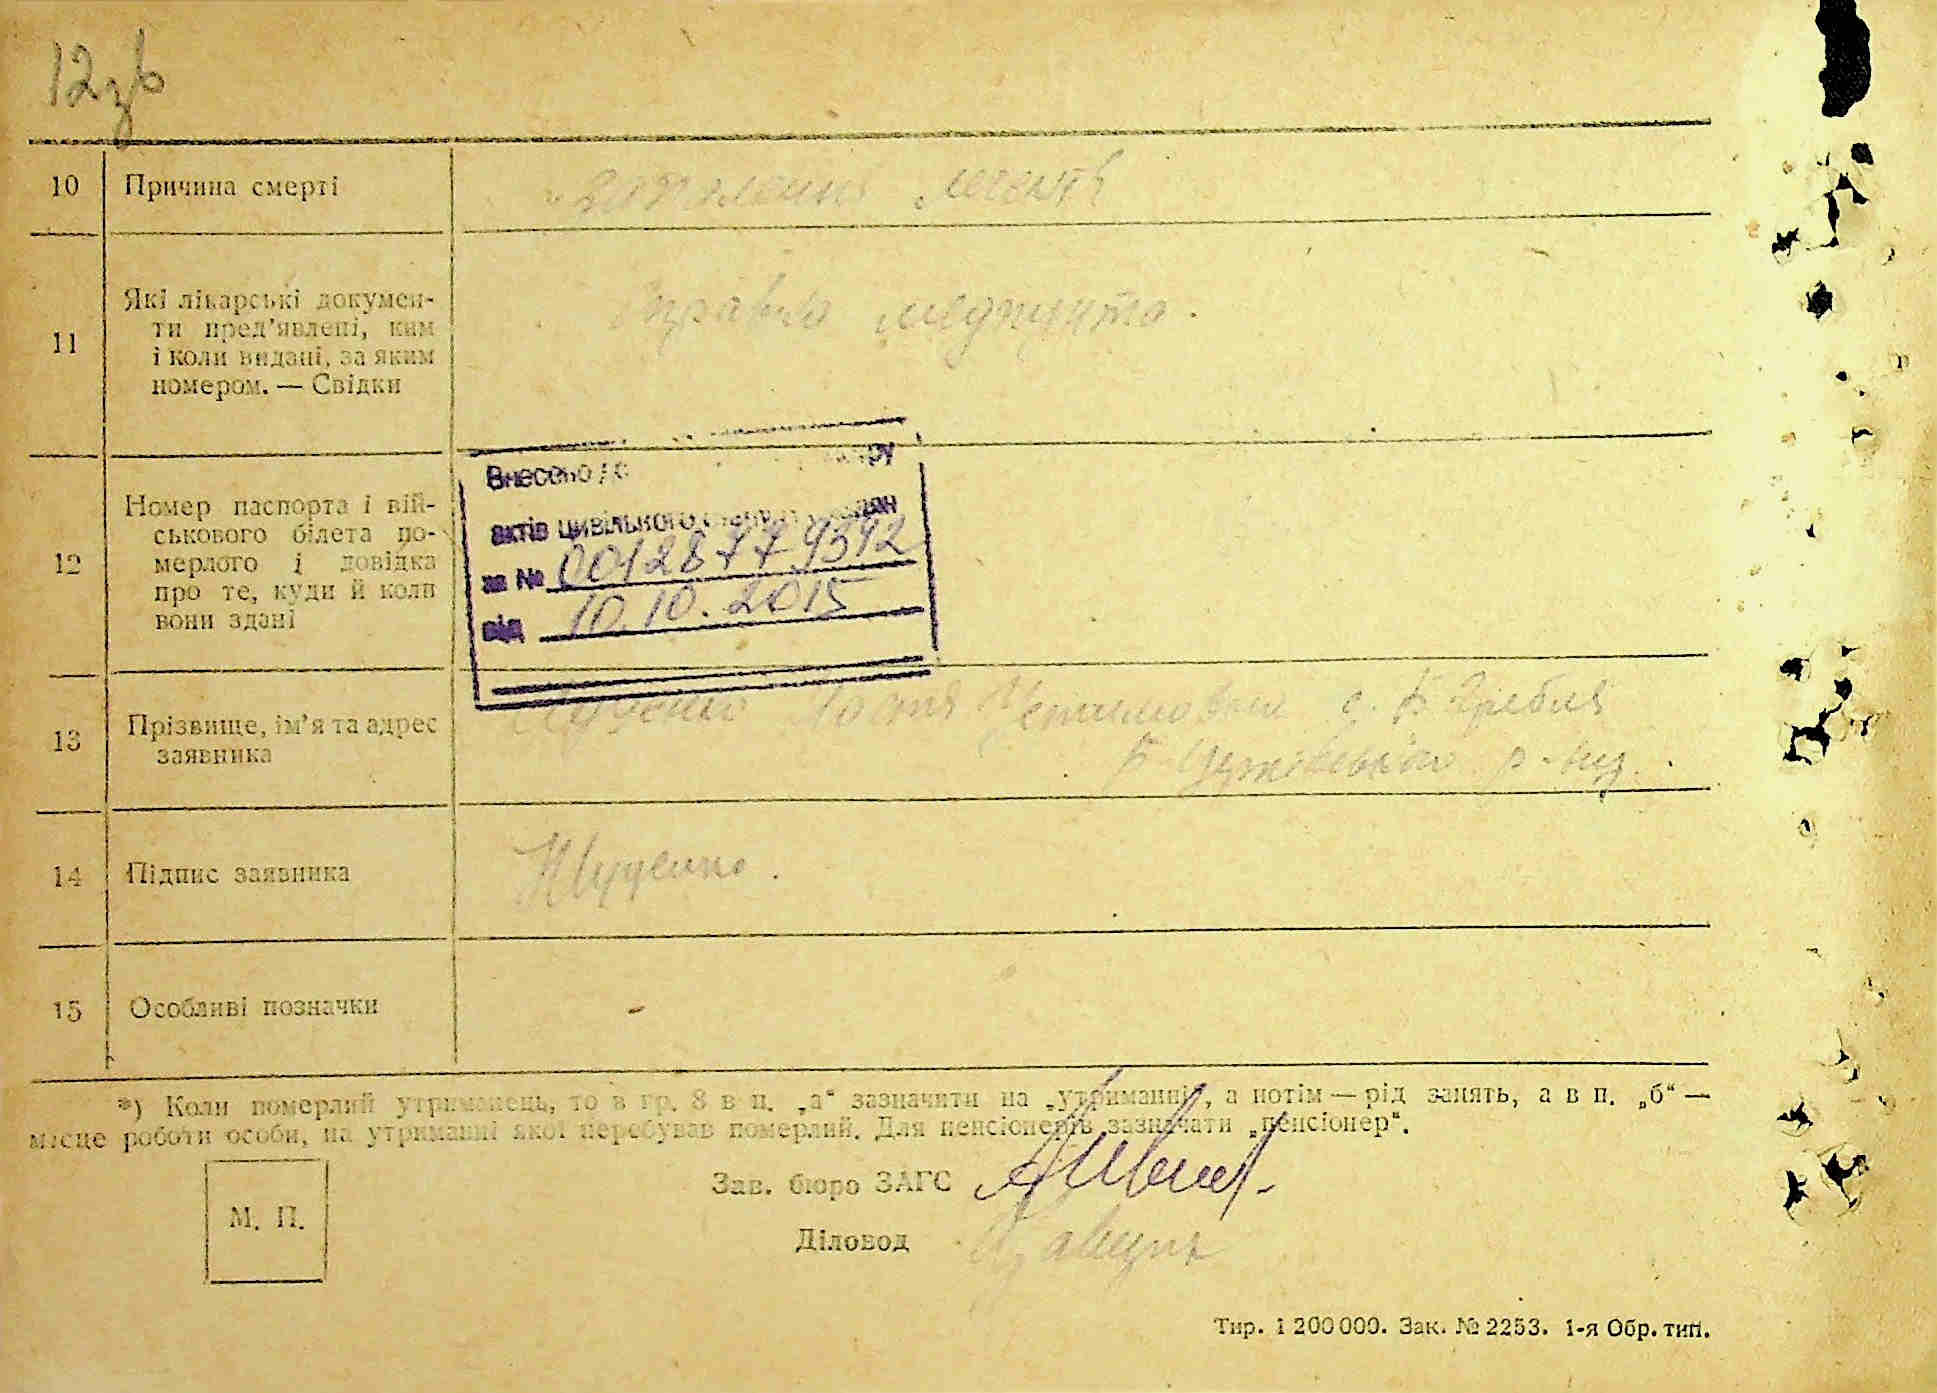 12зв
10 Причина смерті запалення легенів
11 Які лікарські докумен-
ти пред’явлені, ким
і коли видані, за яким
номером. — Свідки
Справка медпункта.
12 Номер паспорта і вій-
ськового білета по-
мерлого і довідка
про те, куди й коли
вони здані
Внесено до
актів цивільного
за № 00128779392
від 10.10.2015
13 Прізвище, ім’я та адрес
заявника
Устимовна с. Б Гребля
р-ну.
14 Підпис заявника
15 Особливі позначки
*) Коли померлий утриманець, то в гр. 8 в п. „а“ зазначити на „утриманні“, а потім — рід занять, а в п. „б“ —
місце роботи особи, на утриманні якої перебував померлий. Для пенсіонерів зазначати „пенсіонер“.
Зав. бюро ЗАГС
М. П.
Діловод
Тир. 1 200 000. Зак. № 2253. 1-я Обр. тип.